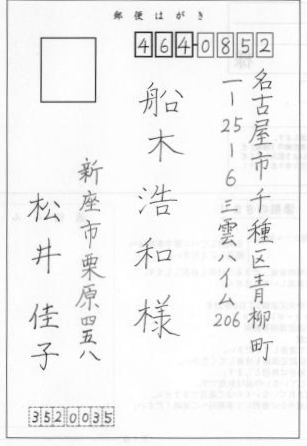 郵便はがき
464-0852
名古屋市千種区青柳町
一ー25ー6三雲ハイム206
船木浩和様
新座市栗原四五八
松井佳子
3520035